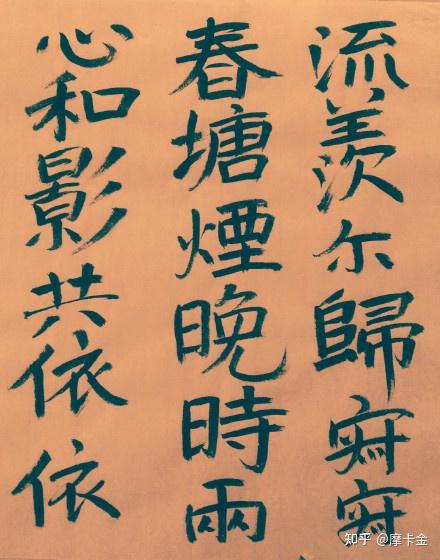 流羨尔歸寂寂
春塘煙晚時兩
心和影共依依
知乎 @摩卡金